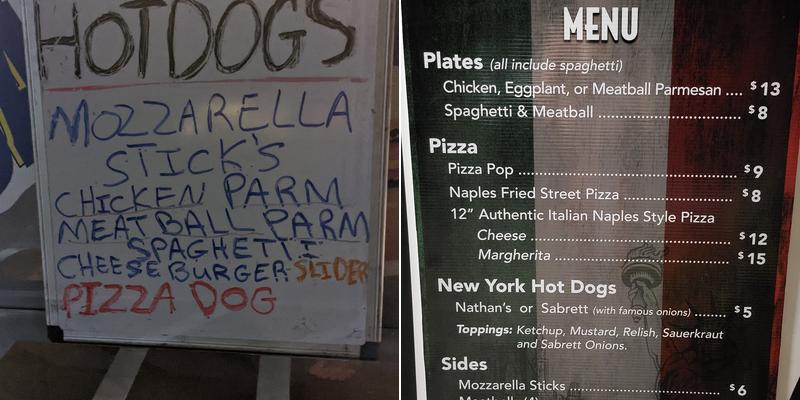 HOTDOGS
MOZZARELLA
STICK'S
CHICKEN PARM
MEATBALL PARM
SPAGHETTI
CHEESEBURGER SLIDER
PIZZA DOG
MENU
Plates (all include spaghetti)
Chicken, Eggplant, or Meatball Parmesan .... $13
Spaghetti & Meatball .......................... $8
Pizza
Pizza Pop ........................................ $9
Naples Fried Street Pizza ..................... $8
12” Authentic Italian Naples Style Pizza
Cheese ..................................... $12
Margherita ................................ $15
New York Hot Dogs
Nathan's or Sabrett (with famous onions) ........ $5
Toppings: Ketchup, Mustard, Relish, Sauerkraut
and Sabrett Onions.
Sides
Mozzarella Sticks ............................ $6